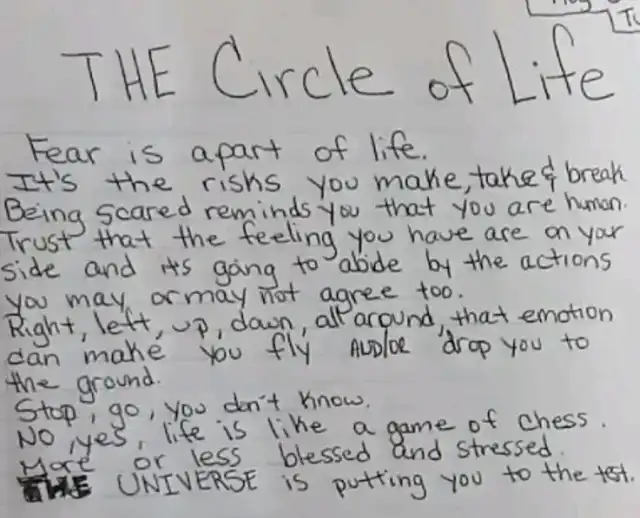 THE Circle of Life
Fear is apart of life.
It's the risks you make, take & break
Being scared reminds you that you are human.
Trust that the feeling you have are on your
side and its going to abide by the actions
you may, or may not agree too.
Right, left, up, down, all around, that emotion
can make you fly AND/OR drop you to
the ground.
Stop, go, you don't know.
NO, yes, life is like a game of chess.
More or less blessed and stressed.
THE UNIVERSE is putting you to the test.